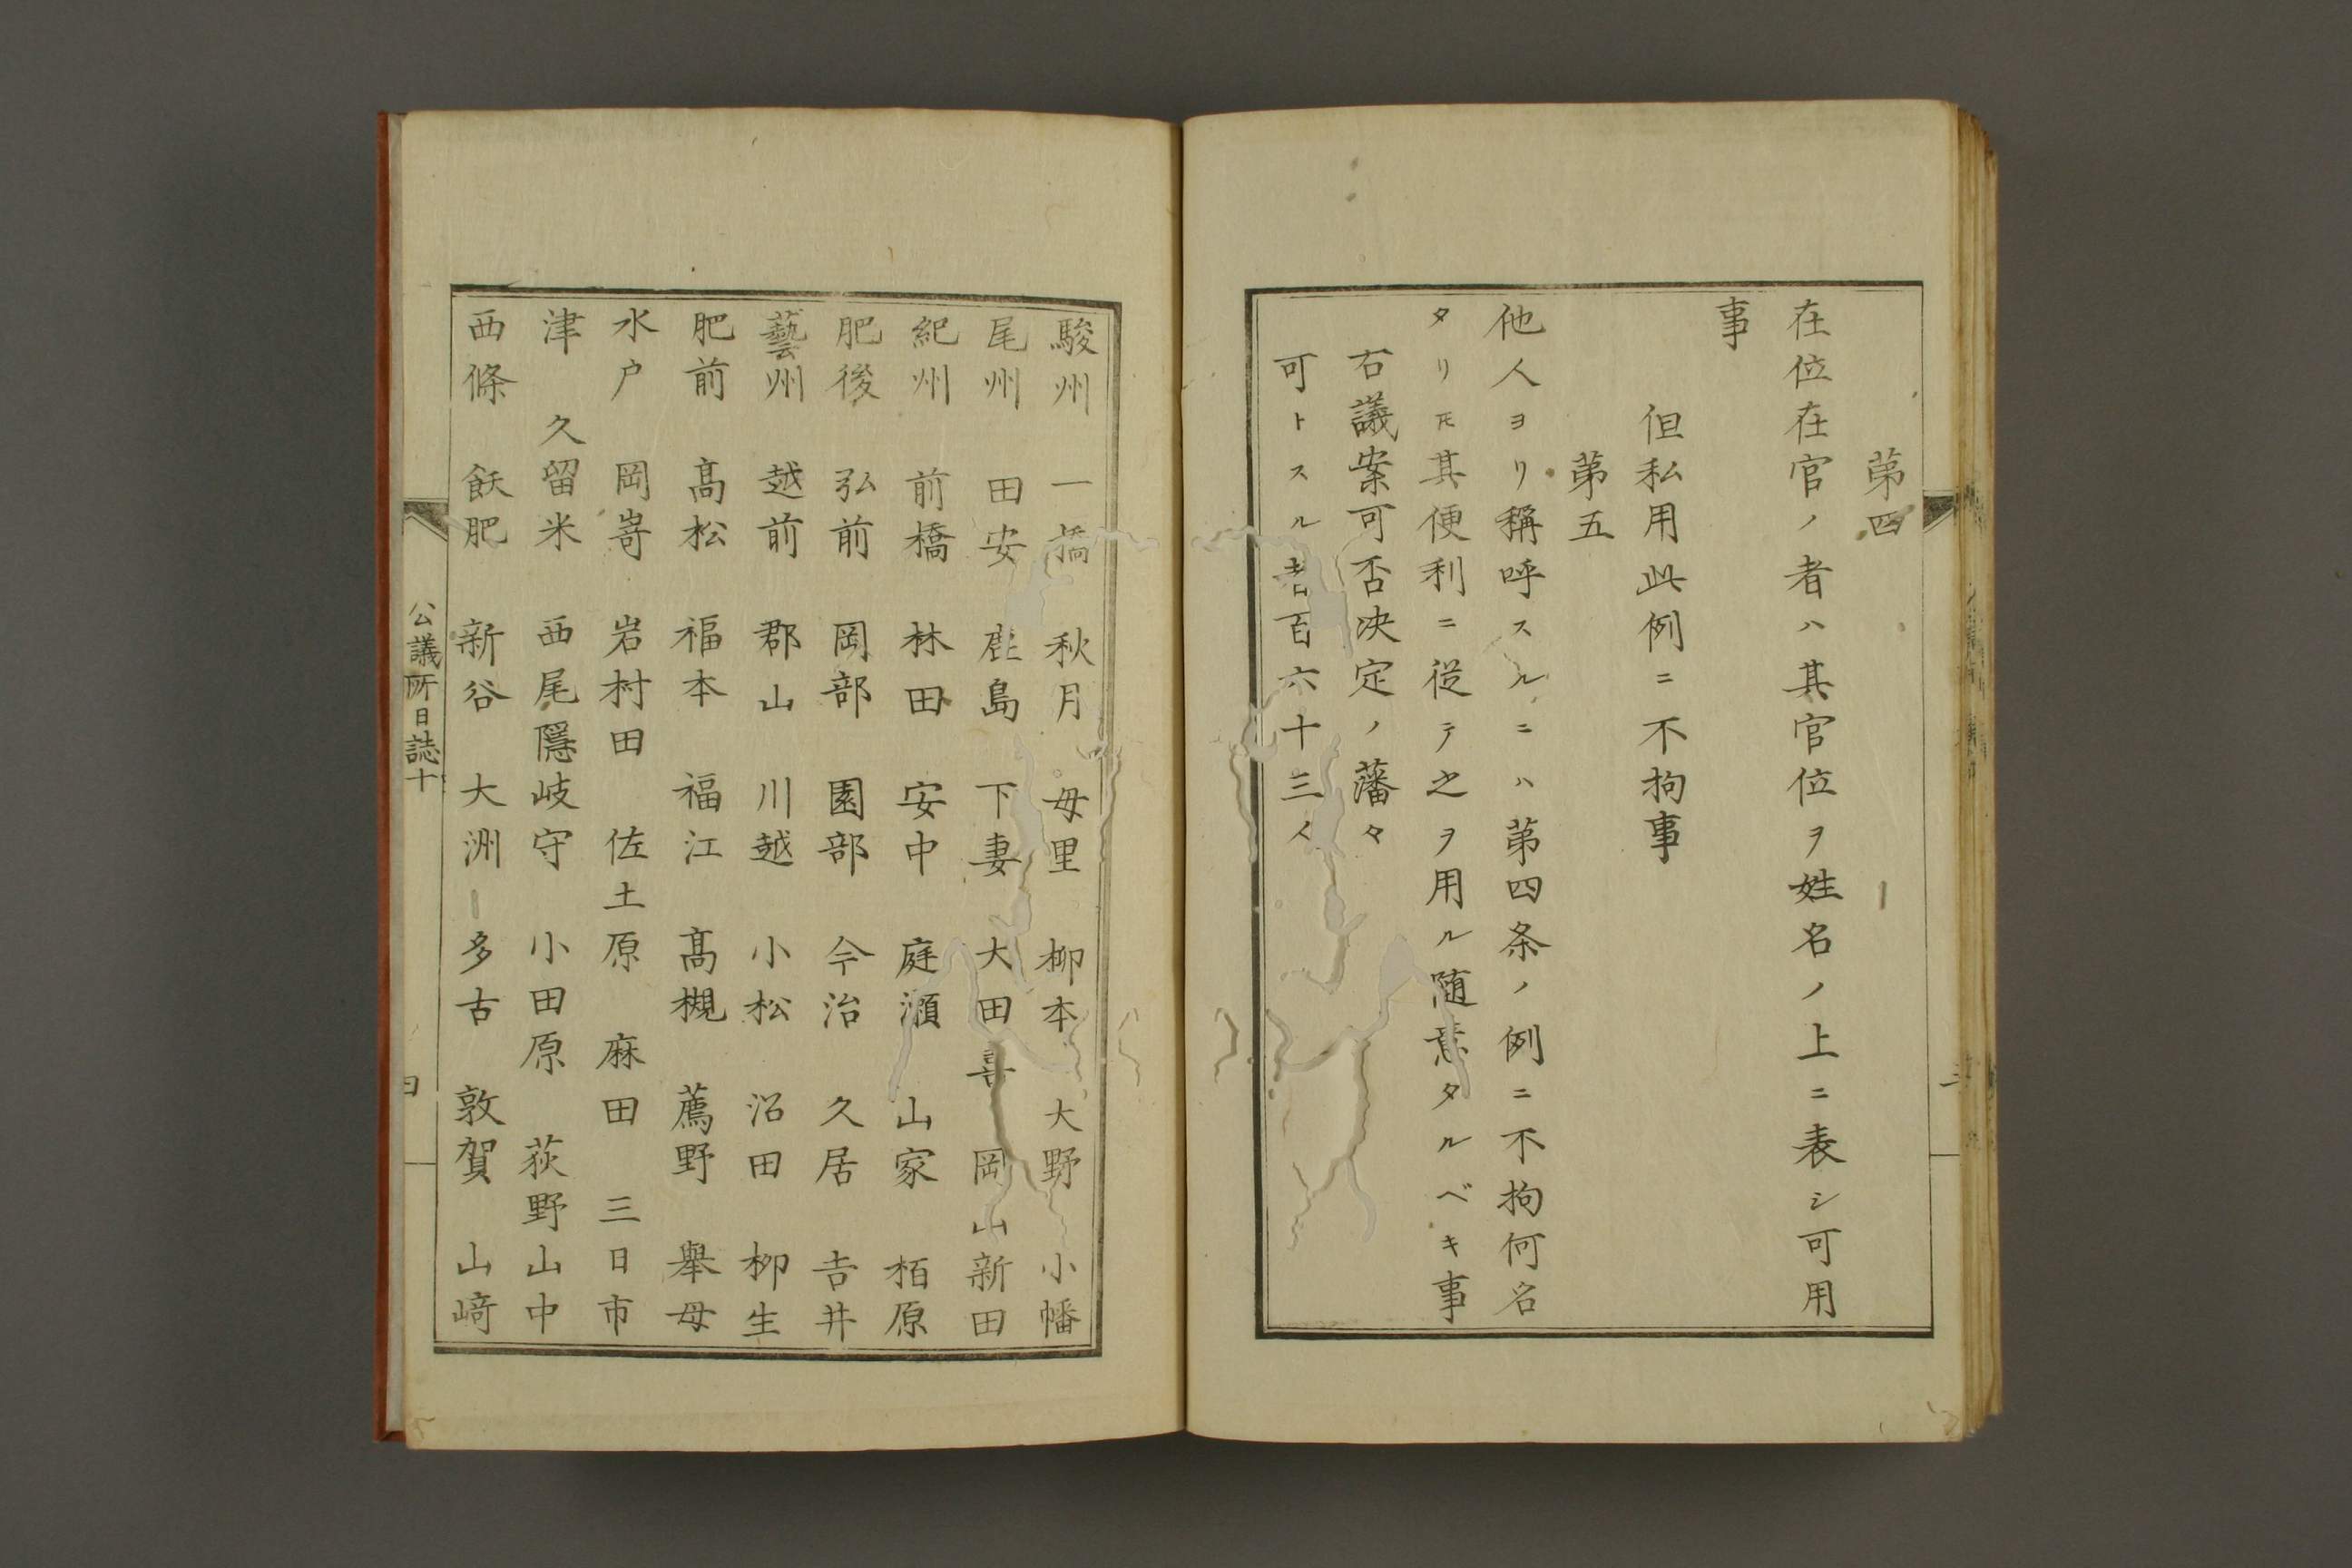 第四
在位在官ノ者ハ其官位ヲ姓名ノ上ニ表シ可用
事
但私用此例ニ不拘事
第五
他人ヨリ稱呼スルニハ第四条ノ例ニ不拘何名
タリ𪜈其便利ニ従テ之ヲ用ル随意タルベキ事
右議案可否决定ノ藩々
可トスル者百六十三人
駿州 一橋 秋月 母里 柳本 大野 小幡
尾州 田安 鹿島 下妻 大田喜 岡山新田
紀州 前橋 林田 安中 庭瀬 山家 栢原
肥後 弘前 岡部 園部 今治 久居 吉井
藝州 越前 郡山 川越 小松 沼田 柳生
肥前 髙松 福本 福江 髙槻 薦野 舉母
水戸 岡嵜 岩村田 佐土原 麻田 三日市
津 久留米 西尾隱岐守 小田原 荻野山中
西條 飫肥 新谷 大洲 多古 敦賀 山﨑
公議所日誌十